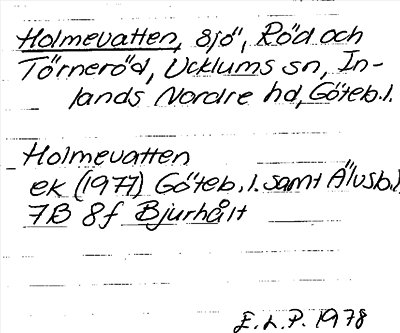 Holmevatten, sjö, Röd och
Törneröd, Ucklums sn, In-
lands Nordre hd, Göteb.l.
Holmevatten
ek (1977) Göteb.l. samt Älvsb.l.
7B 8f Bjurhålt
E.L.P. 1978